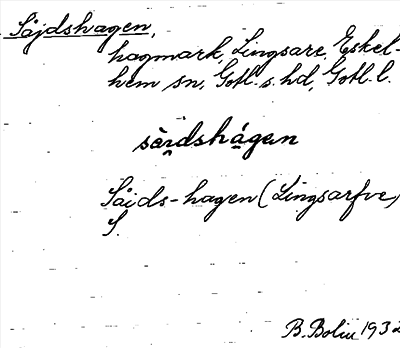 Såjdshagen,
hagmark, Lingsare, Eskel-
hem sn, Gotl. s. hd, Gotl. l.
sàrdshágen
Såids-hagen (Lingsarfve)
S.
B. Bolin 1932